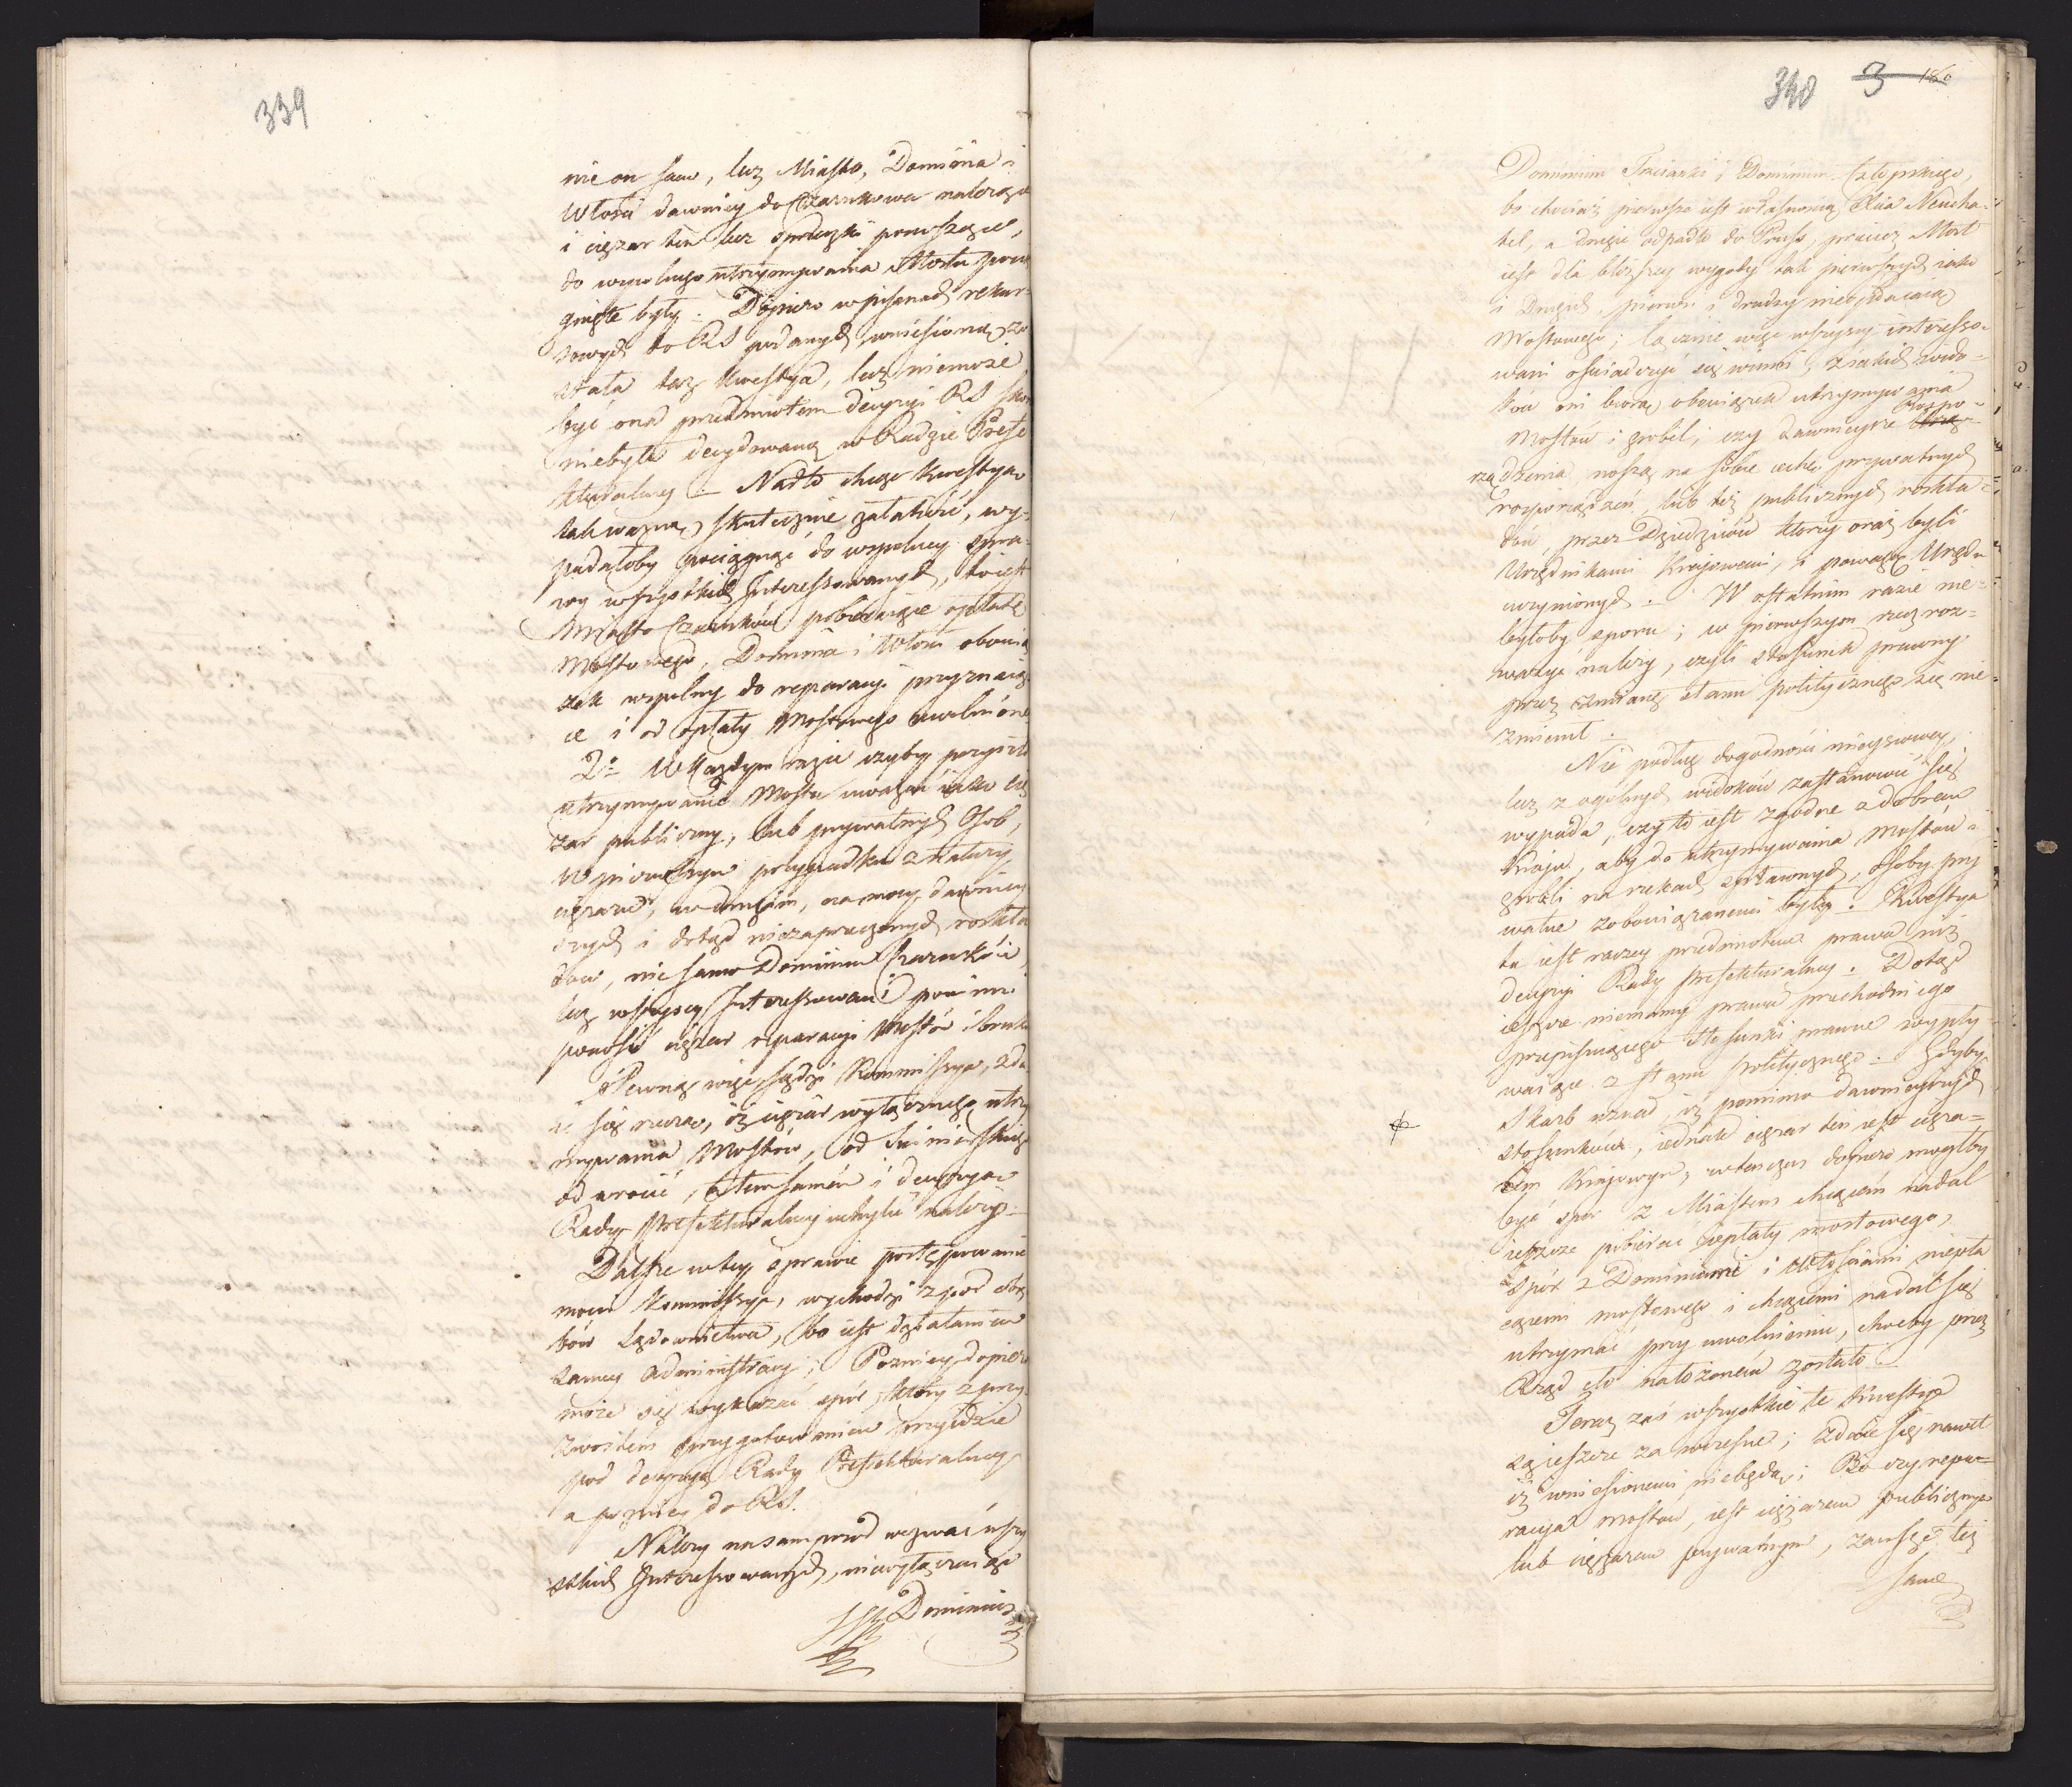 339
nie on sam, lecz Miasto, Dominia i
Włości dawniey do Czarnkowa należące
i ciężar ten bez sprzeczki ponoszące,
do wspolnego utrzymywania Mostu pocią
gnięte były. Dopiero w pismach rekur-
sowych do RS podanych wniesioną zo
stała taż kwestya, lecz niemoże
być ona przedmiotem decyzyi RS skoro
niebyła decydowaną w Radzie Prefe
kturalney. Nadto chcąc kwestyą
tak ważną skutecznie załatwić, wy-
padałoby pociągnąć do wspolney spra-
wy wszystkich Interessowanych, to iest
Miasto Czarnków pobieraiące opłatę
Mostowego, Dominia i Włości obowią
zek wspolny do reparacyi przyznaią
ce i od opłaty Mostowego uwolnione
2o W każdym razie czyby przyszło
utrzymywanie Mostu uważać iako cię
żar publiczny, lub prywatnych Osob,
w pierwszym przypadku z natury
ciężaru, w drugim, na mocy dawniey
szych i dotąd niezaprzeczonych rozkła
dów, nie samo Dominium Czarnków
lecz wszyscy Interessowani powinni
ponosić ciężar reparacyi Mostów i
Pewną więc, sądzi Kommissya, zda
ie się rzeczą, iż ciężar wyłącznego utrzy
mywania Mostów, od Świniarskiego
odwrocić, a tem samém i decyzyą
Rady Prefekturalney uchylić należy.
Dalsze w tey sprawie postępowanie
mocą Kommissyi, wychodzi z pod obrę
bów Sądownictwa, bo iest działaniem
samey administracyi; Pozniey dopiero
może się wykazać spór, który z przy
zwoitém przygotowaniem przyidzie
pod decyzyą Rady Prefekturalney,
a pozniey do RS.
Należy nasamprzód wezwać wszy
stkich Interessowanych, niewyłączaiąc
Dominium
340 3 180
Dominium Trzcianki i Dominium Człopskiego,
bo chociaż pierwsze iest własnością Xcia Neucha-
tel, a drugie odpadło do Pruss, przecież Most
iest dla bliższey wygody tak pierwszych iako
i Drugich, pierwsi i drudzy nieopłacaią
Mostowego; łącznie więc wszyscy interesso-
wani oświadczyć się winni, z iakich wido-
ków oni biorą obowiązek utrzymywania
Mostów i grobel; czy dawnieysze Rozpo-
rządzenia noszą na sobie cechę prywatnych
rozporządzeń, lub też publicznych rozkła-
dów, przez Dziedziców którzy oraz byli
Urzędnikami Kraiowemi, i powagą Urzędu
uczynionych. W ostatnim razie nie-
byłoby sporu; w pierwszym zaś roz-
ważyć należy, czyli stosunek prawny
przez zmianę stanu politycznego się nie
zmienił.
Nie podług dogodności mieyscowey,
lecz z ogólnych widoków zastanowić się
wypada, czy to iest zgodne z dobrem
Kraiu, aby do utrzymywania Mostów i
grobli na rzekach spławnych, Osoby pry
watne zobowiązanemi były. Kwestya
ta iest raczey przedmiotem prawa niż
decyzyi Rady Prefekturalney. Dotąd
ieszcze niemamy prawa przechodniego
przepisuiącego stosunki prawne wypły
waiące z stanu politycznego. Gdyby
Skarb uznał, iż pomimo dawnieyszych
stosunków, iednak ciężar ten iest cięża-
rem Kraiowym, wtenczas dopiero mogłby
być spór z Miastem chcącém nadal
ieszcze pobierać opłaty mostowego,
spór z Dominiami i Włościami niepła
cącemi mostowego i chcącemi nadal się
utrzymać przy uwolnieniu, choćby przez
Rząd cło nałożoném zostało.
Teraz zaś wszystkie te kwestye
są ieszcze za wczesne; zdaie się nawet
iż wniesionemi niebędą; Bo czy repa-
racya mostów, iest ciężarem publicznym
lub ciężarem prywatnym, zawsze też
same